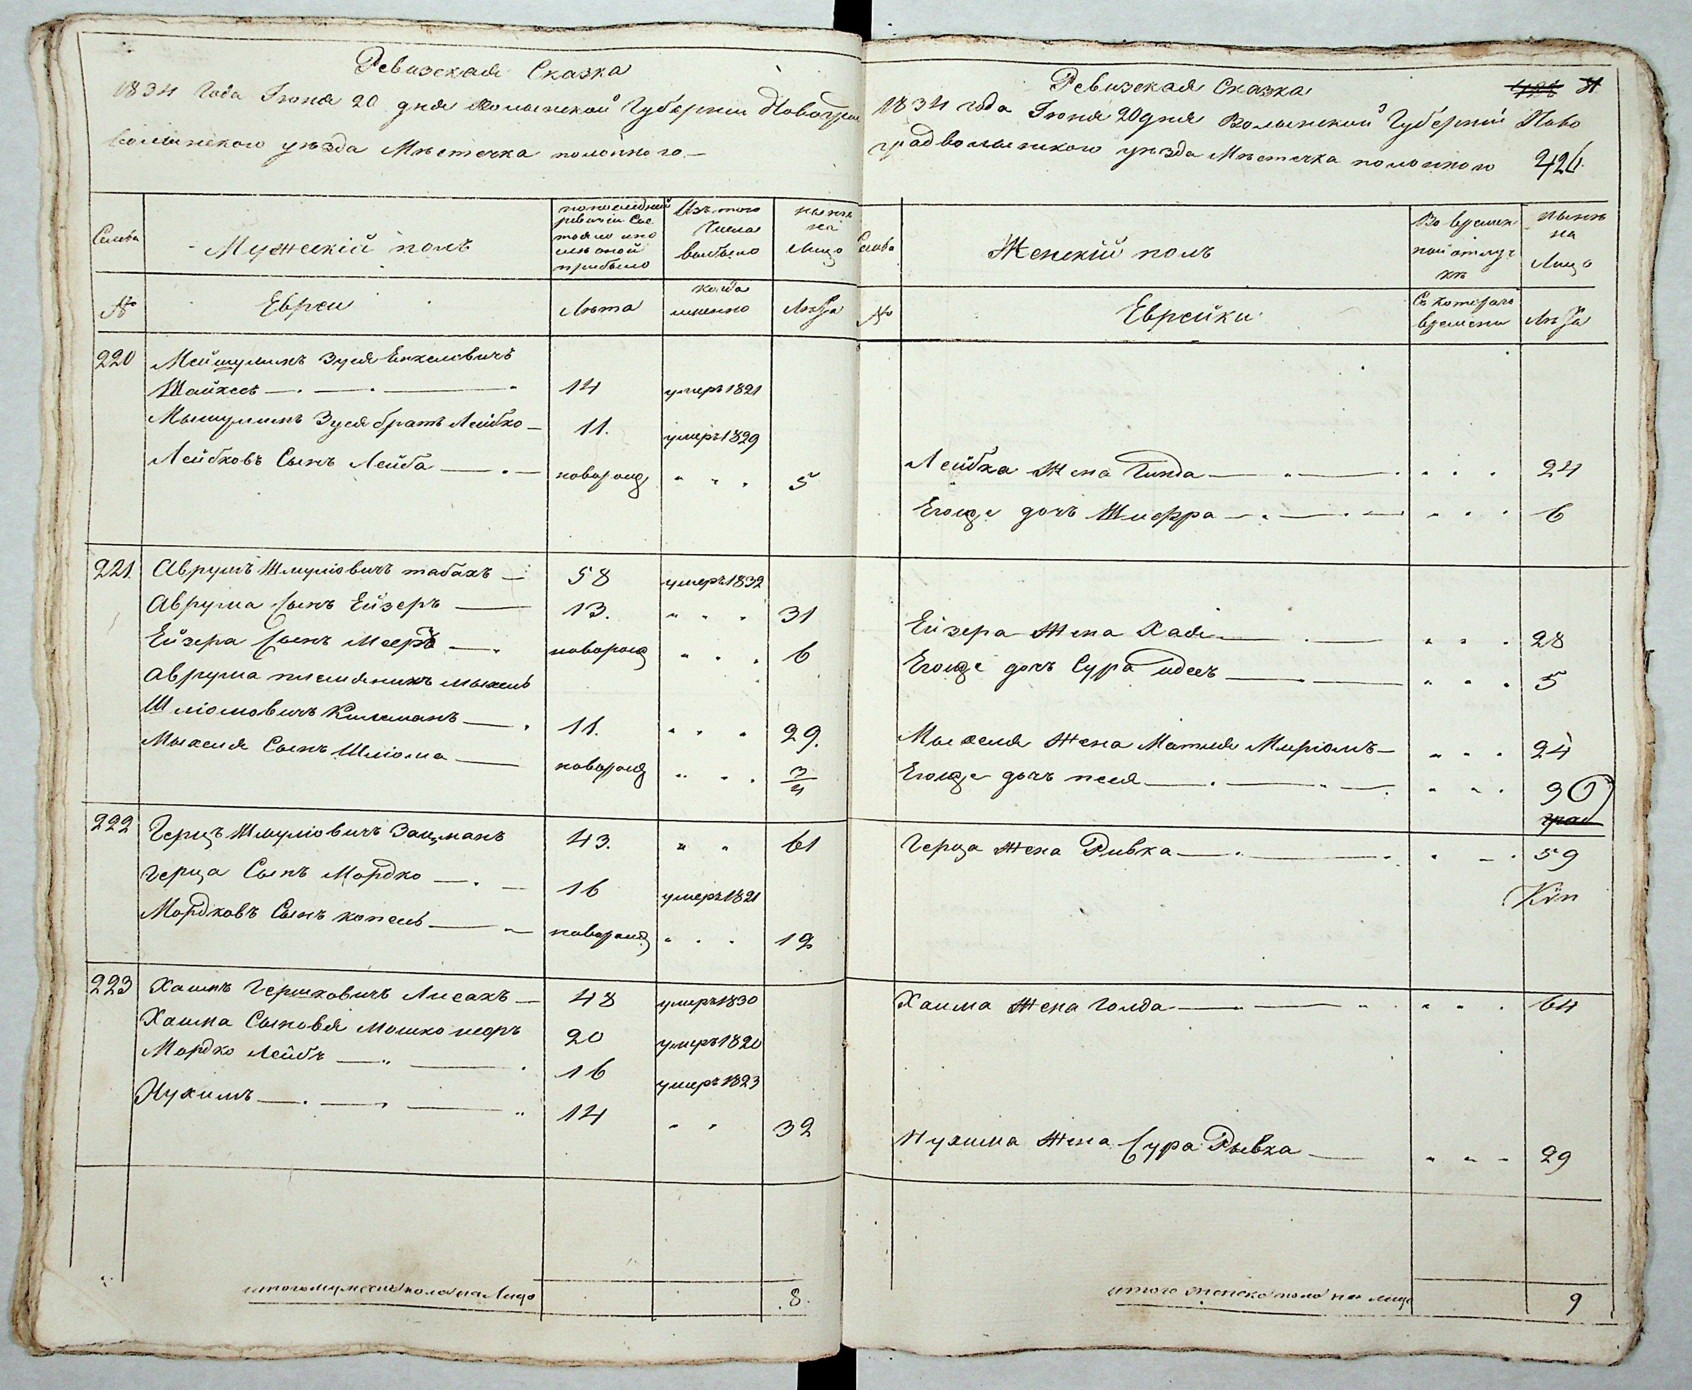 Ревизская Сказка
1834 Года Іюня 20 дня Волынской Губерніи Новаград
волынского уезда Местечка полонного
Семьи
Мужескій полъ
по последней
ревизіи сос
тояло и по
сле оной
прибыло
Изъ того
Числа
выбыло
ныне
на
Лицо
№
Евреи
Лета
когда
именно
Лета
220
Мейшулимъ Зуся Енкелевичъ
Шайхетъ 14 умеръ 1821
Мышулимъ Зуся братъ Лейбко 11. умеръ 1829
Лейбковъ Сынъ Лейба новорожд 5
221. Аврумъ Шмуліовичъ табакъ 58 умеръ 1832
Аврума Сынъ Ейзеръ 13. 31
Ейзера Сынъ Мееръ новорожд 6
Аврума племяникъ Мыхель
Шліомовичъ Кильманъ 11. 29.
Мыхеля Сынъ Шліома новорожд 3/4
222 Герцъ Шмуліовичъ Зацманъ 43. 61
Герца Сынъ Мордко 16 умеръ 1821
Мордковъ Сынъ копель новорожд 12
223 Хаимъ Гершковичъ Лисакъ 48 умеръ 1830
Хаима Сыновья Мошко иоръ 20 умеръ 1820
Мордко Лейбъ 16 умеръ 1823
Нухимъ 14 32
итого мужеска пола на Лицо 8.
Ревизская Сказка 31
1834 года Іюня 20 дня Волынской Губерніи Ново
градволынского уезда Местечка полонного 426.
Семьи
Женскій полъ
Во времен
ной отлуч
ке
ныне
на
Лицо
№
Еврейки
Съ котораго
времени
Лета
Лейбка Жена Гинда 24
Егоже дочь Шифра 6
Ейзера Жена Хая 28
Егоже дочь Сура Идесъ 5
Мыхеля Жена Матля Миріамъ 24
Егоже дочь песя 3
Герца Жена Ривка 59
Хаима Жена Голда 64
Нухима Жена Сура Рывка 29
итого женска пола на лицо 9